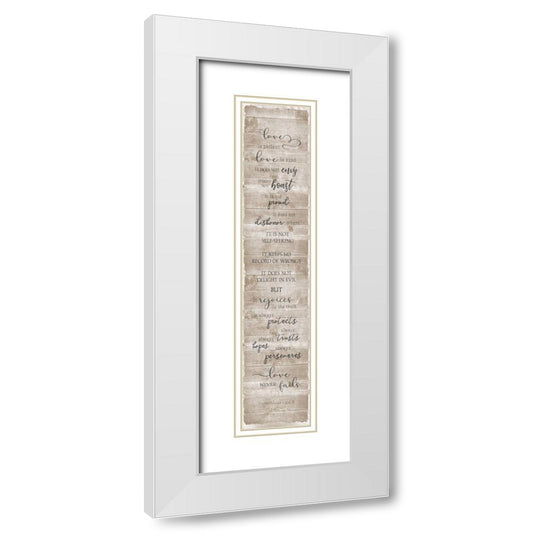 love
is patient
love is kind
it does not envy
boast
proud
it does not
dishonor others
IT IS NOT
SELF-SEEKING
IT KEEPS NO
RECORD OF WRONGS
IT DOES NOT
DELIGHT IN EVIL
BUT
rejoices
in the truth
always
protects
always trusts
hopes always
perseveres
love
NEVER fails